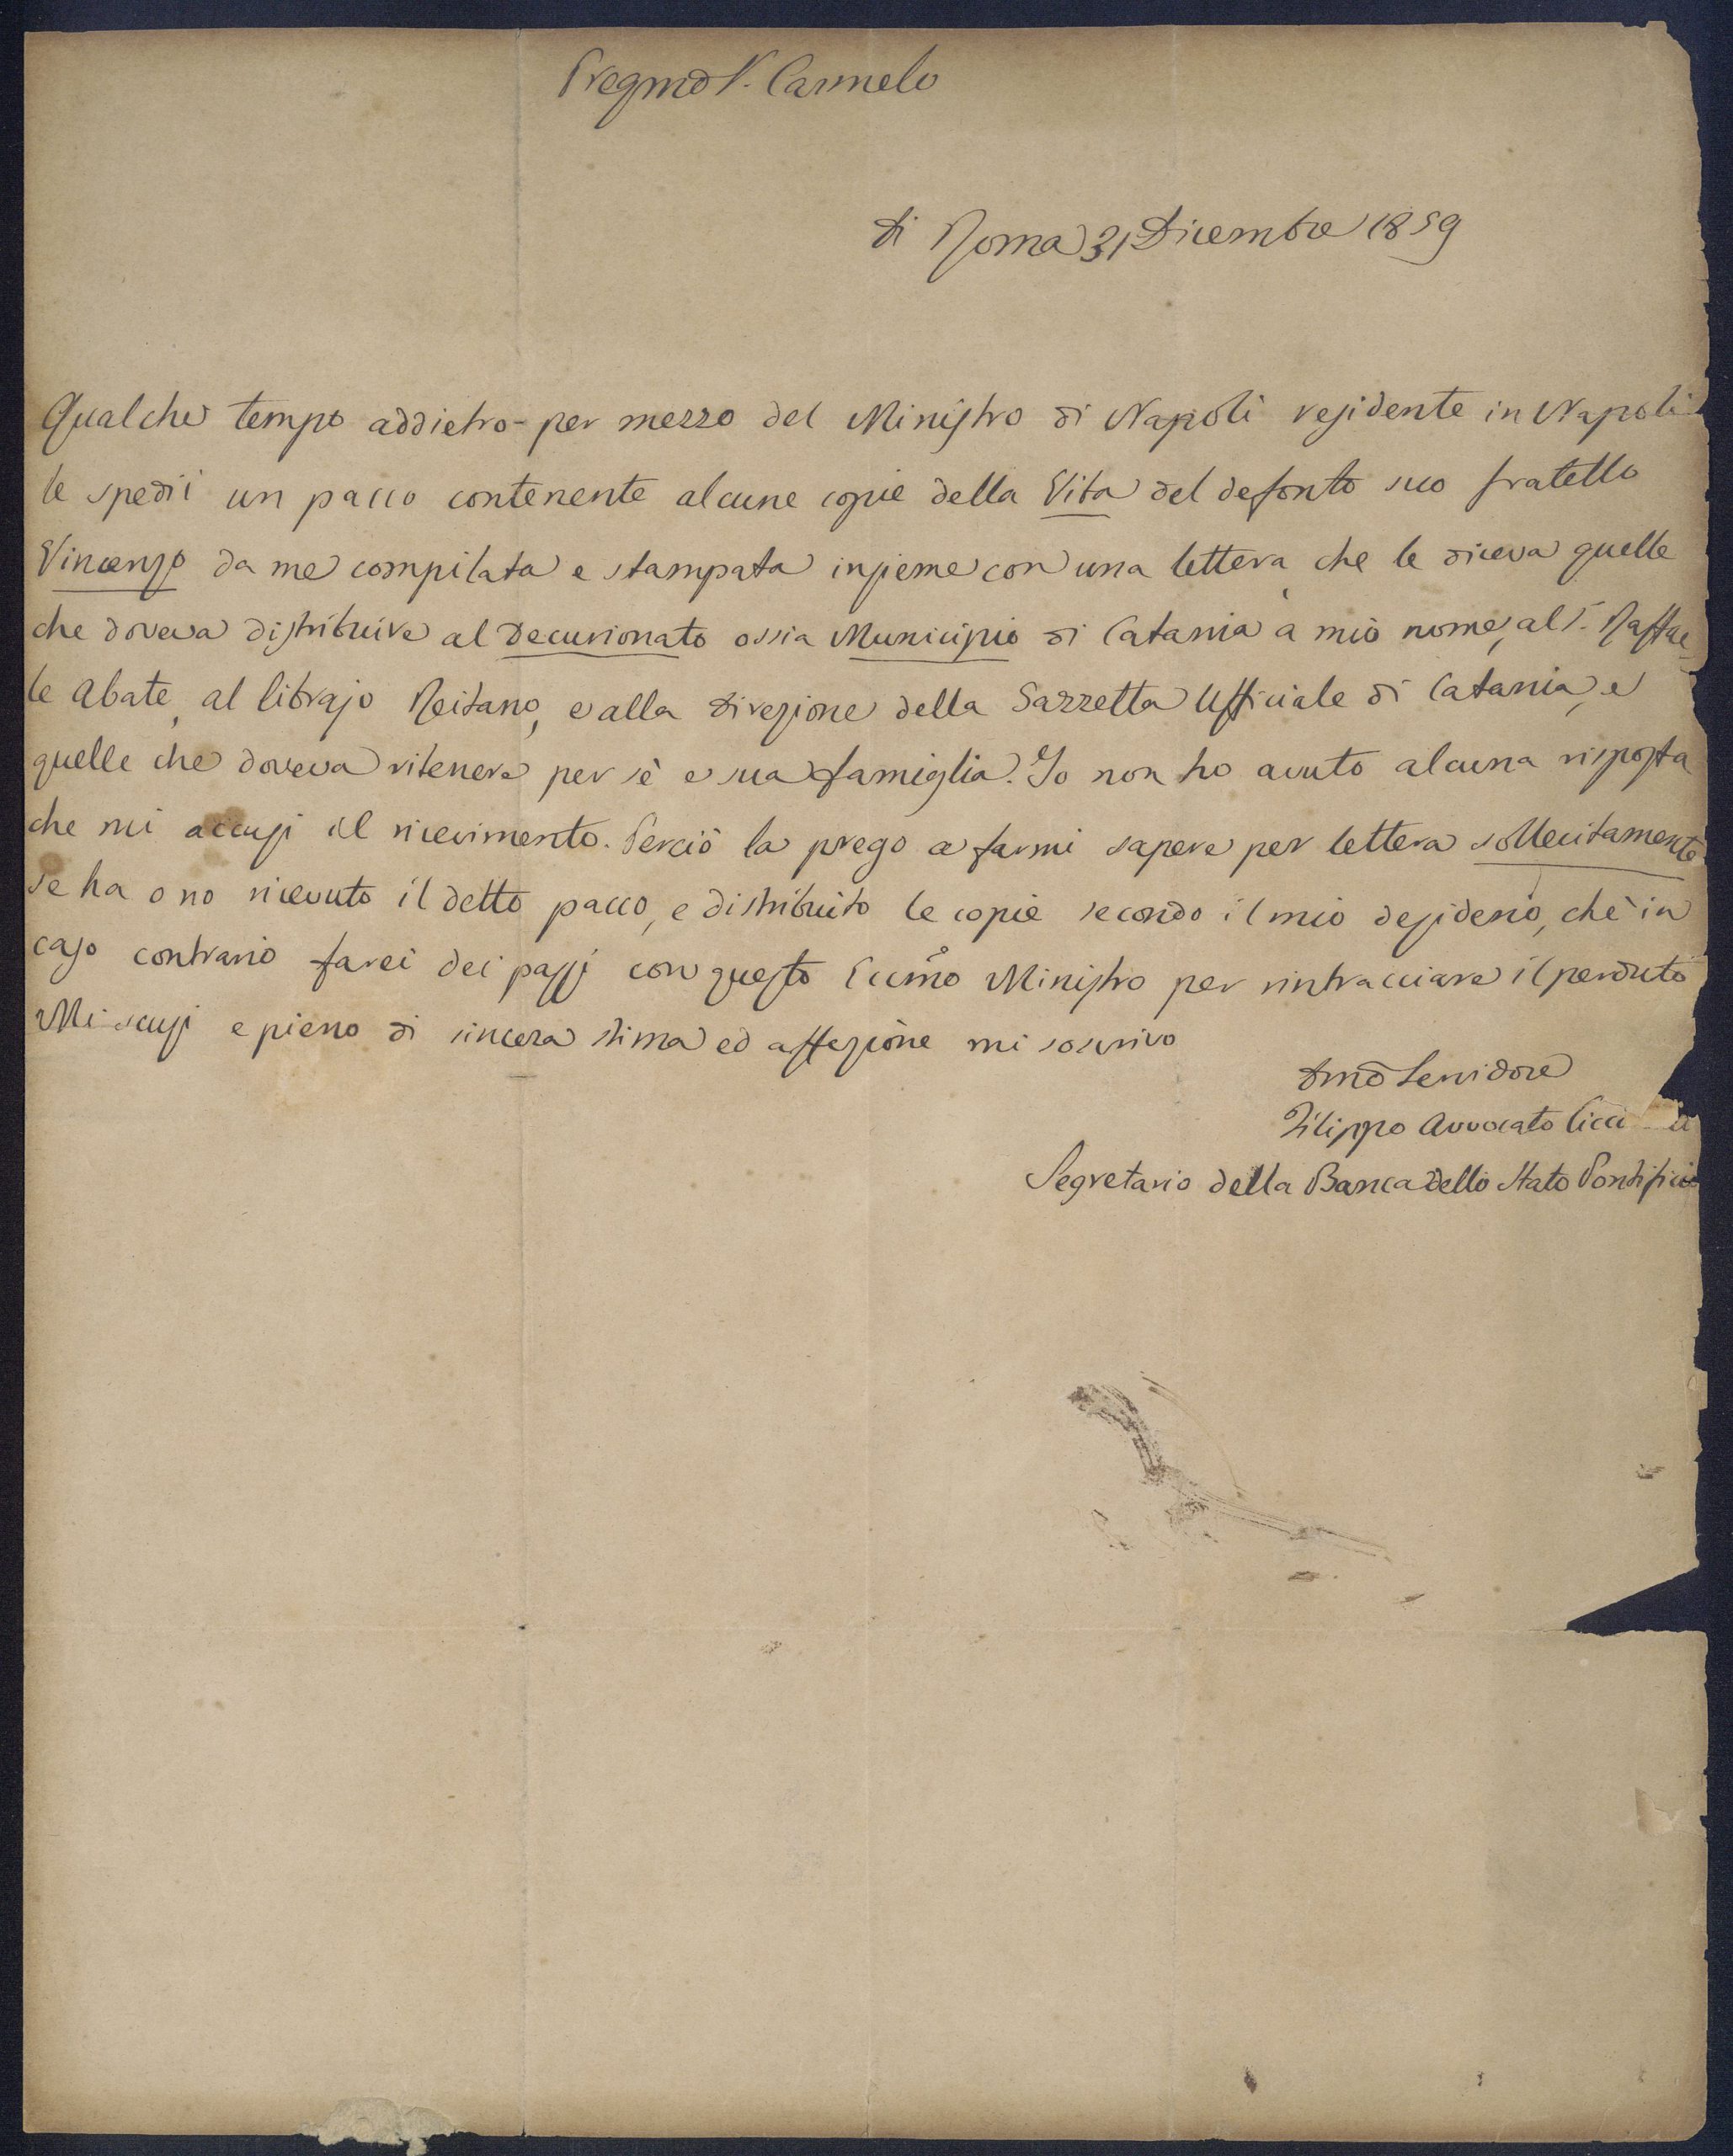 Pregmo S. Carmelo
di Roma 31 Dicembre 1859
Qualche tempo addietro per mezzo del Ministro di Napoli residente in Napoli
le spedii un pacco contenente alcune copie della Vita del defonto suo fratello
Vincenzo da me compilata e stampata insieme con una lettera, che le diceva quelle
che doveva distribuire al Decurionato ossia Municipio di Catania a mio nome, al S. Raffae-
le Abate, al librajo Reitano, e alla Direzione della Gazzetta Ufficiale di Catania, e
quelle che doveva ritenere per sè e sua famiglia. Io non ho avuto alcuna risposta
che mi accusi il ricevimento. Perciò la prego a farmi sapere per lettera sollecitamente
se ha o no ricevuto il detto pacco, e distribuito le copie secondo il mio desiderio, chè in
caso contrario farei dei passi con questo Eccmo Ministro per rintracciare il perduto
Mi scusi e pieno di sincera stima ed affezione mi soscrivo
Dmo Servidore
Filippo Avvocato Cicci
Segretario della Banca dello Stato Pontificio